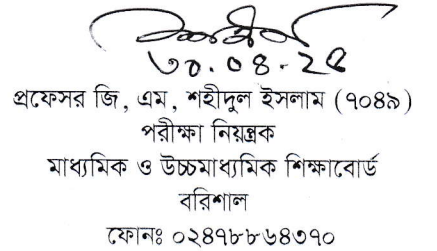 ৩০.০৪.২৫
প্রফেসর জি, এম, শহীদুল ইসলাম (৭০৪৯)
পরীক্ষা নিয়ন্ত্রক
মাধ্যমিক ও উচ্চমাধ্যমিক শিক্ষাবোর্ড
বরিশাল
ফোনঃ ০২৪৭৮৮৬৪৩৭০